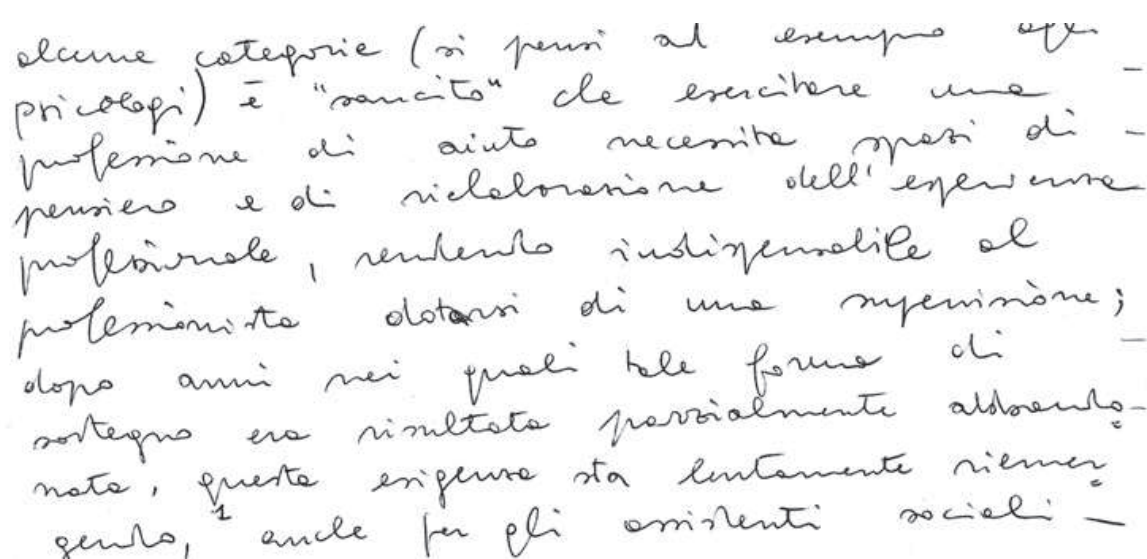 alcune categorie (si pensi ad esempio agli
psicologi) è "sancito" che esercitare una –
professione di aiuto necessita spazi di –
pensiero e di rielaborazione dell'esperienza
professionale, rendendo indispensabile al
professionista dotarsi di una supervisione;
dopo anni nei quali tale forma di –
sostegno era risultata parzialmente abbando=
nata, questa esigenza sta lentamente riemer=
gendo,¹ anche per gli assistenti sociali –